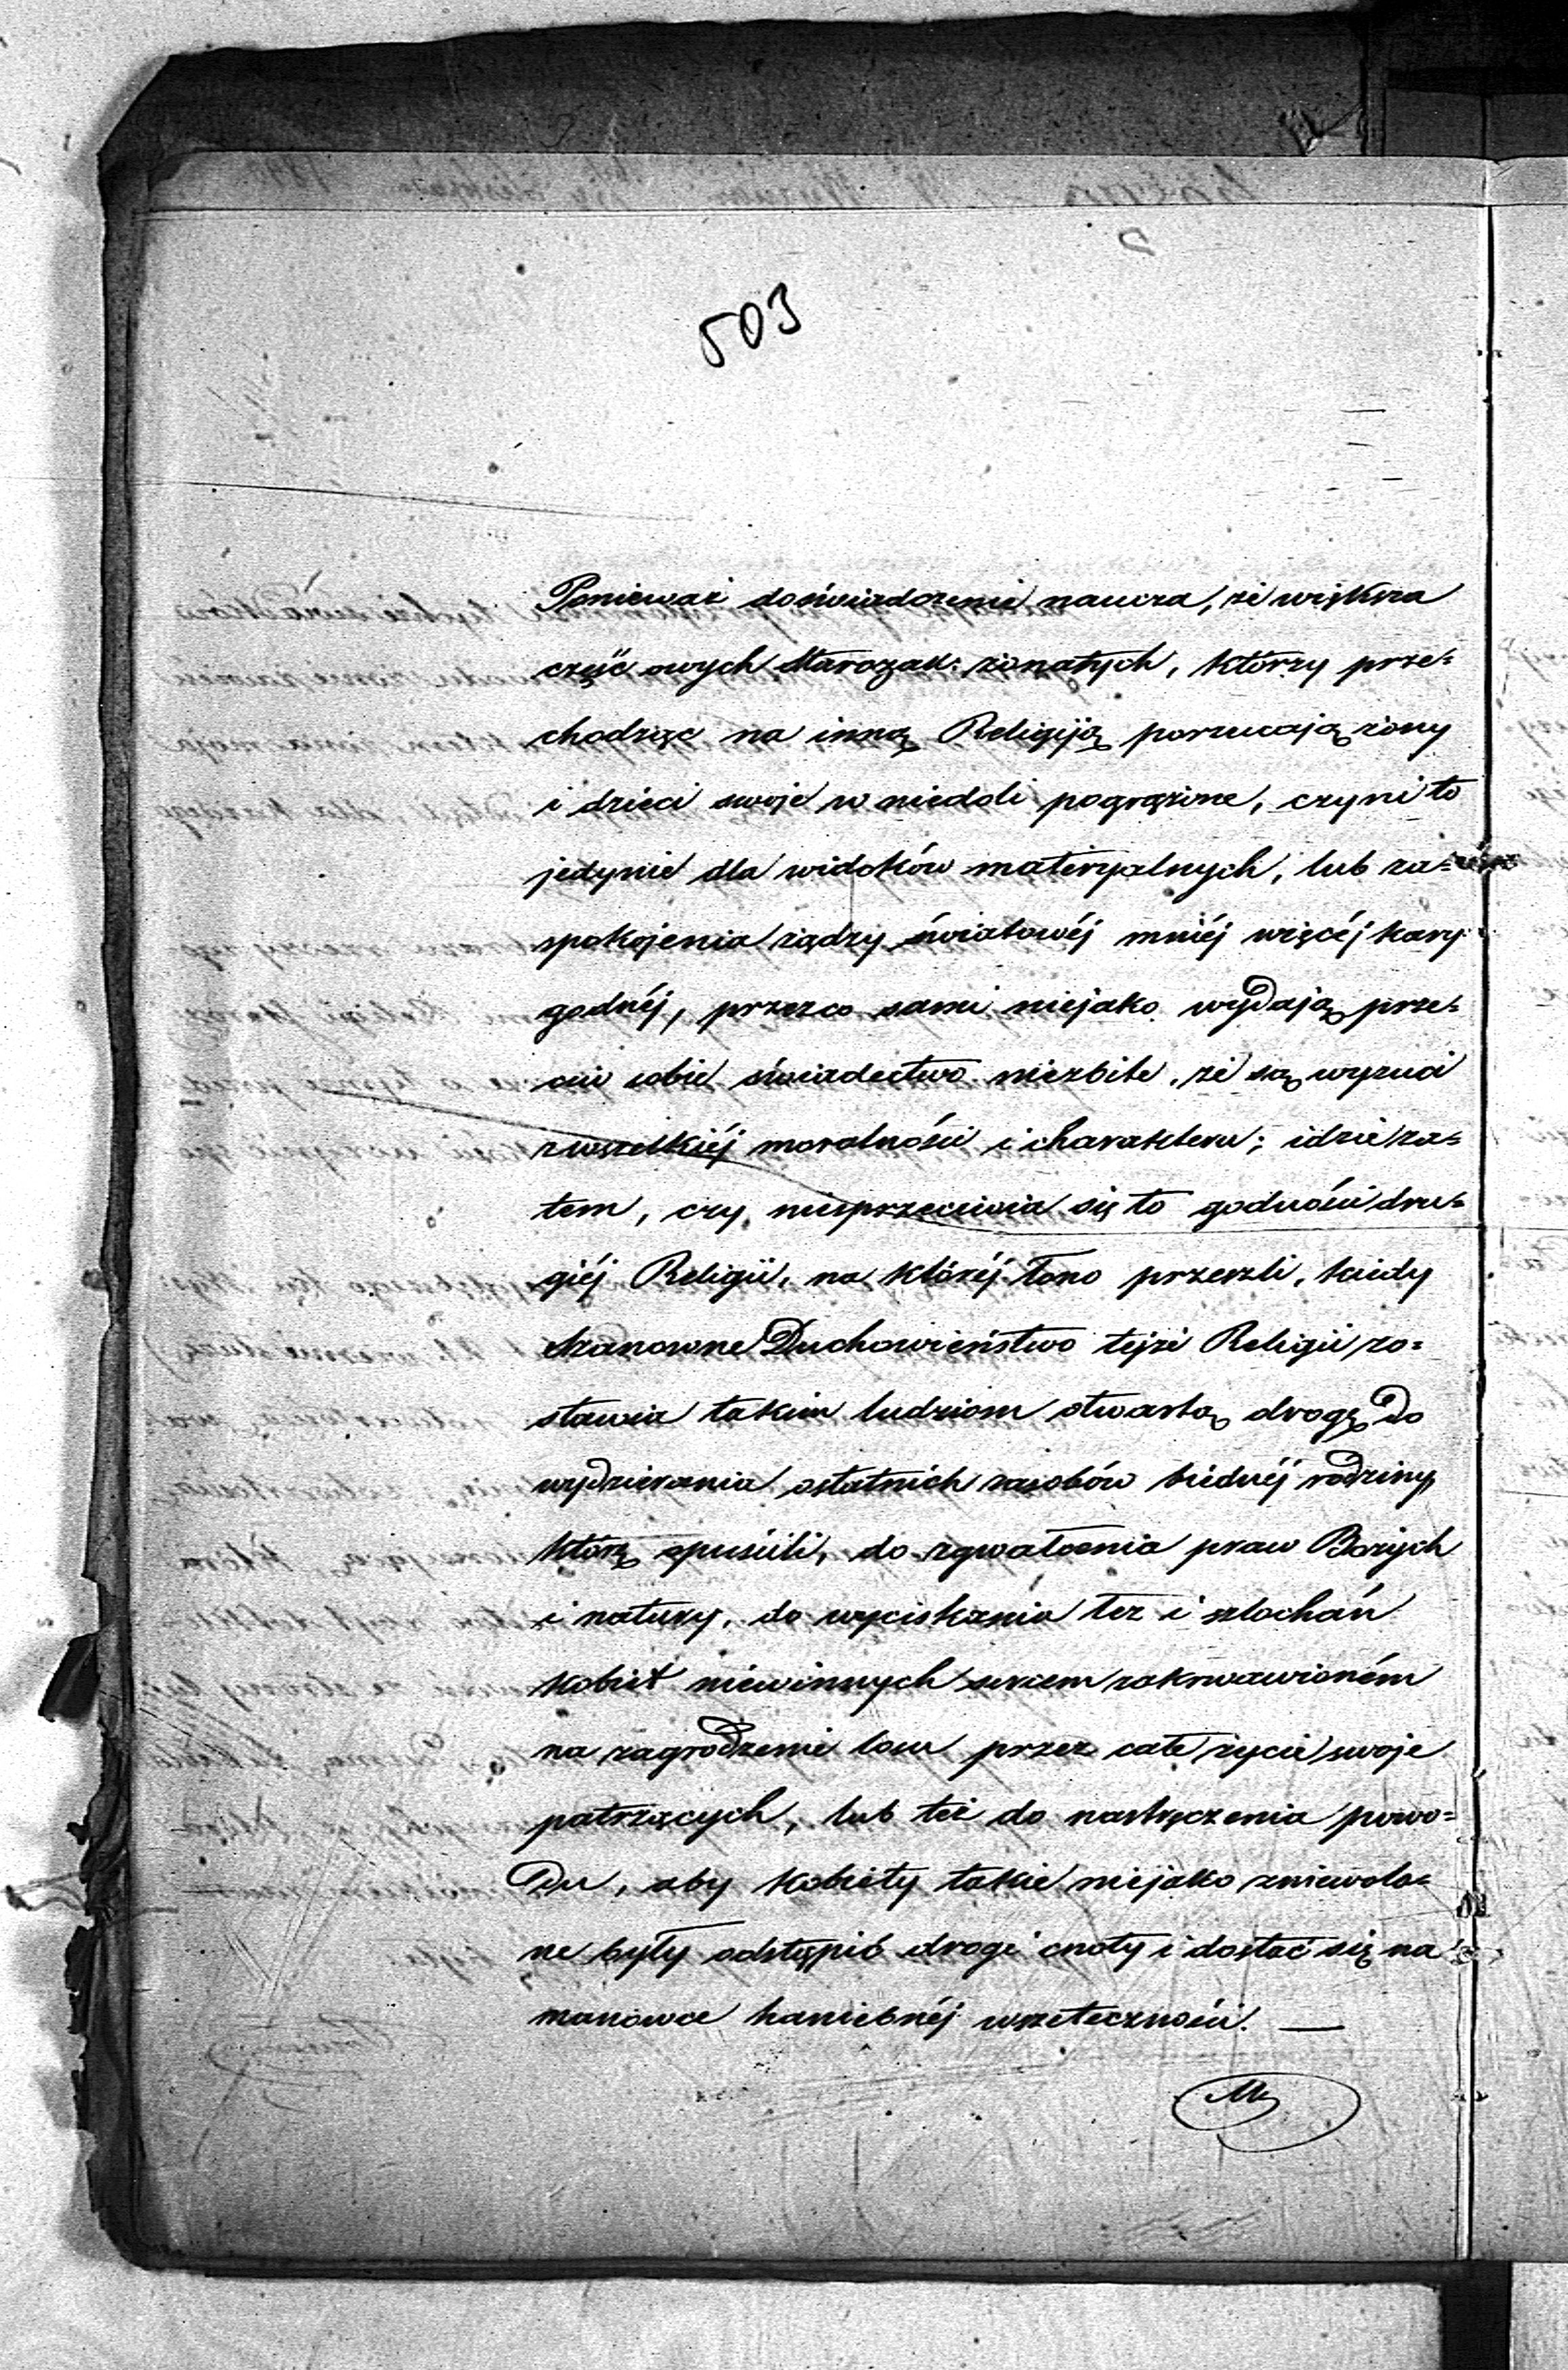 503
Ponieważ doświadczenie naucza, że większa
część owych Starozak: żonatych, którzy prze=
chodząc na inną Religiją porzucają żony
i dzieci swoje w niedoli pogrążone, czyni to
jedynie dla widoków materyalnych, lub za=
spokojenia żądzy światowéj mniéj więcéj kary
godnéj, przezco sami niejako wydają prze=
ciw sobie świadectwo niezbite, że są wyzuci
z wszelkiéj moralności i charakteru; idzie za=
tem, czy niesprzeciwia się to godności dru=
giéj Religii, na któréj łono przeszli, kiedy
Szanowne Duchowieństwo tejże Religii zo=
stawia takim ludziom otwartą drogę do
wydzierania ostatnich zasobów biednéj rodziny
którą opuścili, do zgwałcenia praw Bożych
i natury, do wyciskania łez i szlochań
kobiet niewinnych sercem zakrwawioném
na zagrodzenie losu przez całe życie swoje
patrzących, lub też do nastręczenia powo=
du, aby kobiety takie niejako zniewolo=
ne były odstępić drogi cnoty i dostać się na
manowce haniebnéj wszeteczności. —